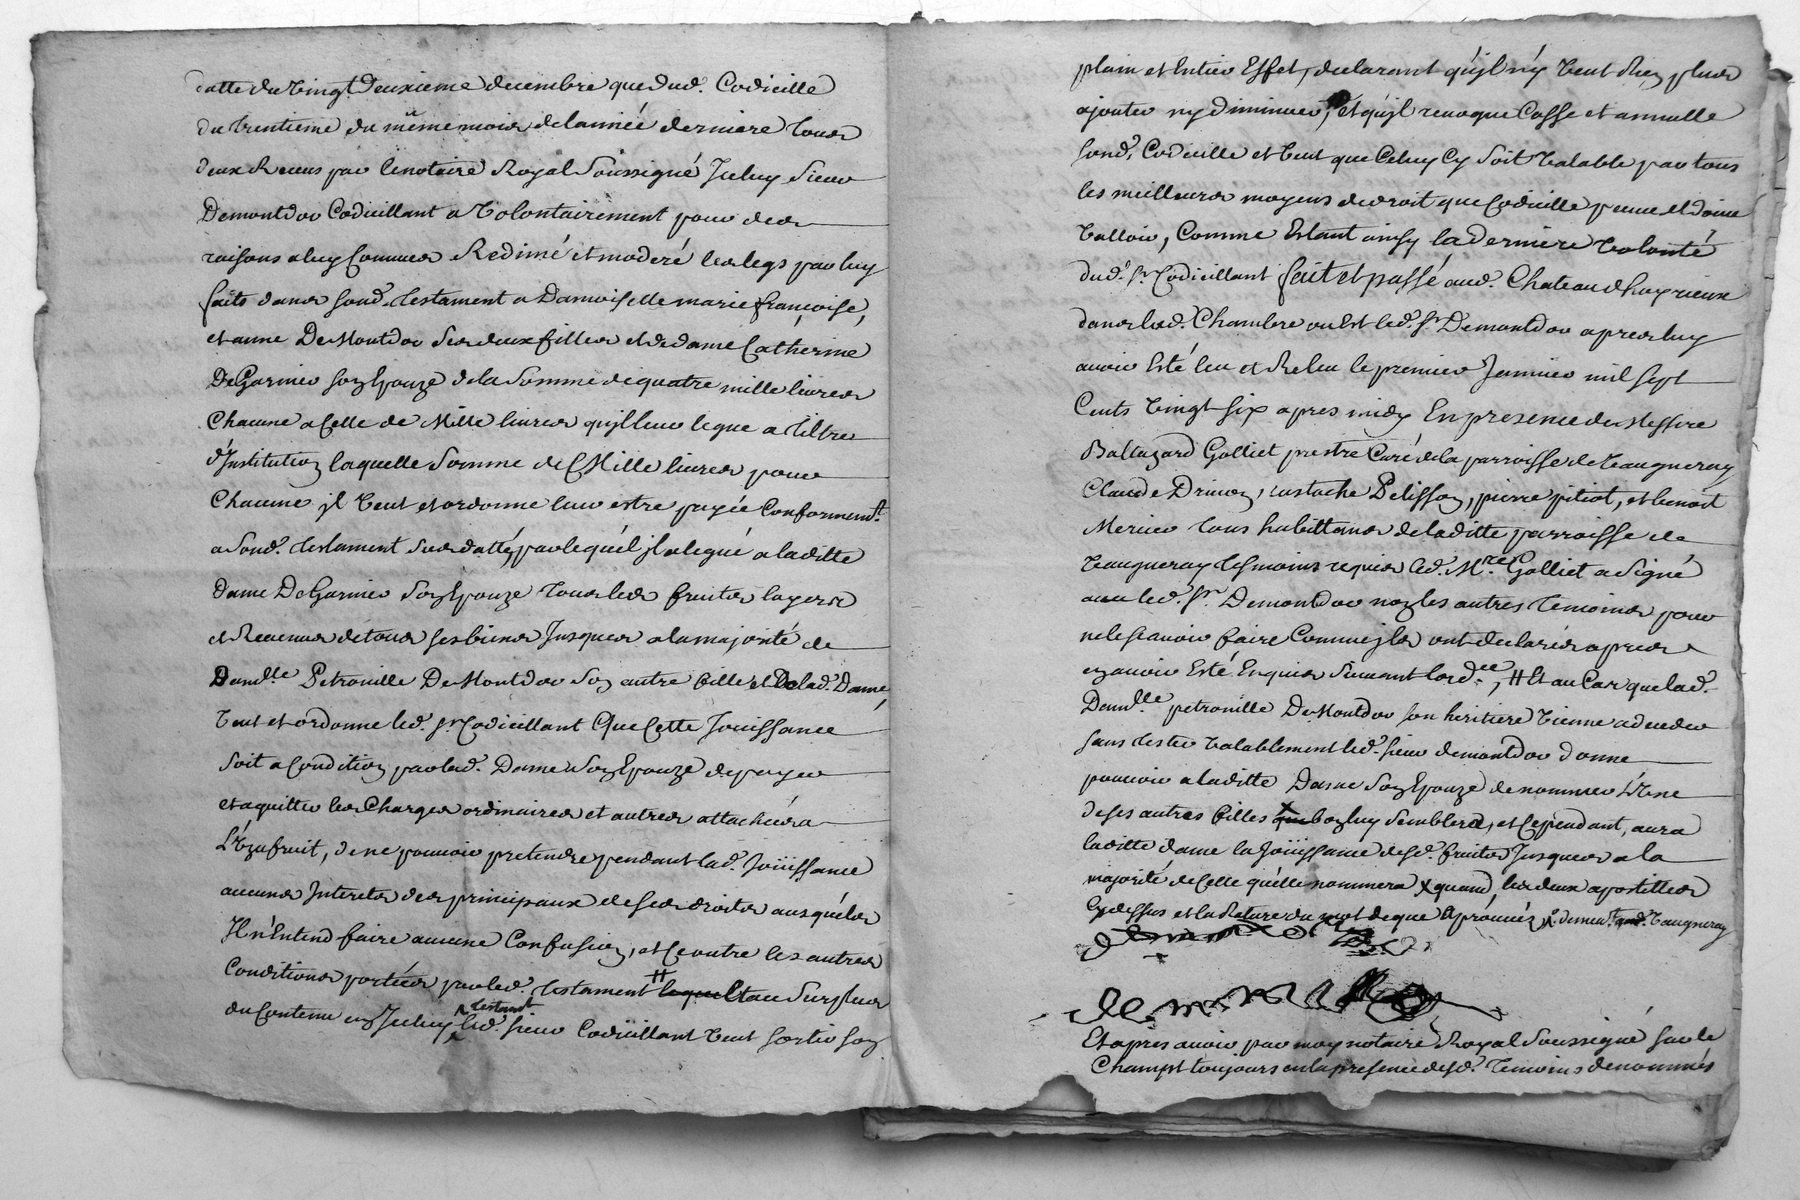 datte du vingt deuxieme decembre que dud. Codicille
du trentieme du même mois de lanneé derniere tous
deux Receus par le notaire Royal Soussigné Iceluy Sieur
Demontdor Codicillant a volontairement pour des
raisons a luy Connues Redimé et moderé les legs par luy
faits dans sond. testament a Damoiselle marie françoise,
et anne DeMontdor Ses deux filles et de dame Catherine
DeGarnier son Epouze de la Somme de quatre mille livres
Chacune a Celle de Mille livres quil leur legue a tiltre
d'Institution laquelle Somme de Mille livres pour
Chacune il veut et ordonne leur estre payée Conformemt.
a Sond. testament Sus datté, par lequél il a legué a laditte
dame DeGarnier Son Epouze tous les fruits
et Revenus de tous ses biens Jusques a la majorité de
Damlle. Petronille DeMontdor Son autre fille et Delad. Dame,
veut et ordonne led. Sr. Codicillant Que Cette Jouissance
Soit a Condition par lad. Dame Son Epouze de payer
et aquitter les Charges ordinaires et autres attachées a
L'Uzufruit, de ne pouvoir pretendre pendant lad. Joüissance
aucuns Interets des principaux de ses droits ausquéls
Il n'Entend faire aucune Confusion, et Ce outre les autres
Conditions portées par led. testament # lequel au Surplus
du Contenu en Iceluy testamt. led. Sieur Codicillant veut sortir son
plain et Entier Effet, declarant qu'il n'y veut Rien plus
ajouter ny diminuer, et qu'il revoque Casse et annulle
sond. Codicille et veut que Celuy Cy Soit valable par tous
les meilleurs moyens de droit que Codicille peut et doive
valloir, Comme Estant ainsy la derniere volonté
dud. Sr. Codicillant fait et passé aud. Chateau
dans lad. Chambre ou Est led. Sr. Demontdor apres luy
avoir Esté leu et Releu le premier Janvier mil sept
Cents vingt six apres midy En presence de Messire
Baltazard Golliet prestre Curé de la parroisse de Vaugneray
Claude Drivon, eustache Pelisson, pierre pitiot, et benoit
Mercier tous habittans de laditte parroisse de
Vaugneray tesmoins requis led. Mre. Golliet a Signé
avec led. Sr. Demontdor non les autres temoins pour
ne le scavoir faire Comme ils ont declarés apres
en avoir Esté Enquis Suivant lord.ce, # Et au Cas que lad.
Damlle. petronille DeMontdor son heritiere vienne a deceder
sans tester valablement led. Sieur demontdor donne
pouvoir a laditte Dame Son Epouze de nommer L'Une
de ses autres filles que bon luy Semblera, et Cependant, aura
laditte dame la Joüissance desd. fruits Jusques a la
majorité de Celle qu'élle nommera X quand, les deux apostilles
Cy dessus et la Rature du mot de que Aprouvéz
demontdor
demontdor
Et apres avoir par moy notaire Royal Soussigné sur le
Champt toujours en la presence desd. temoins denommés